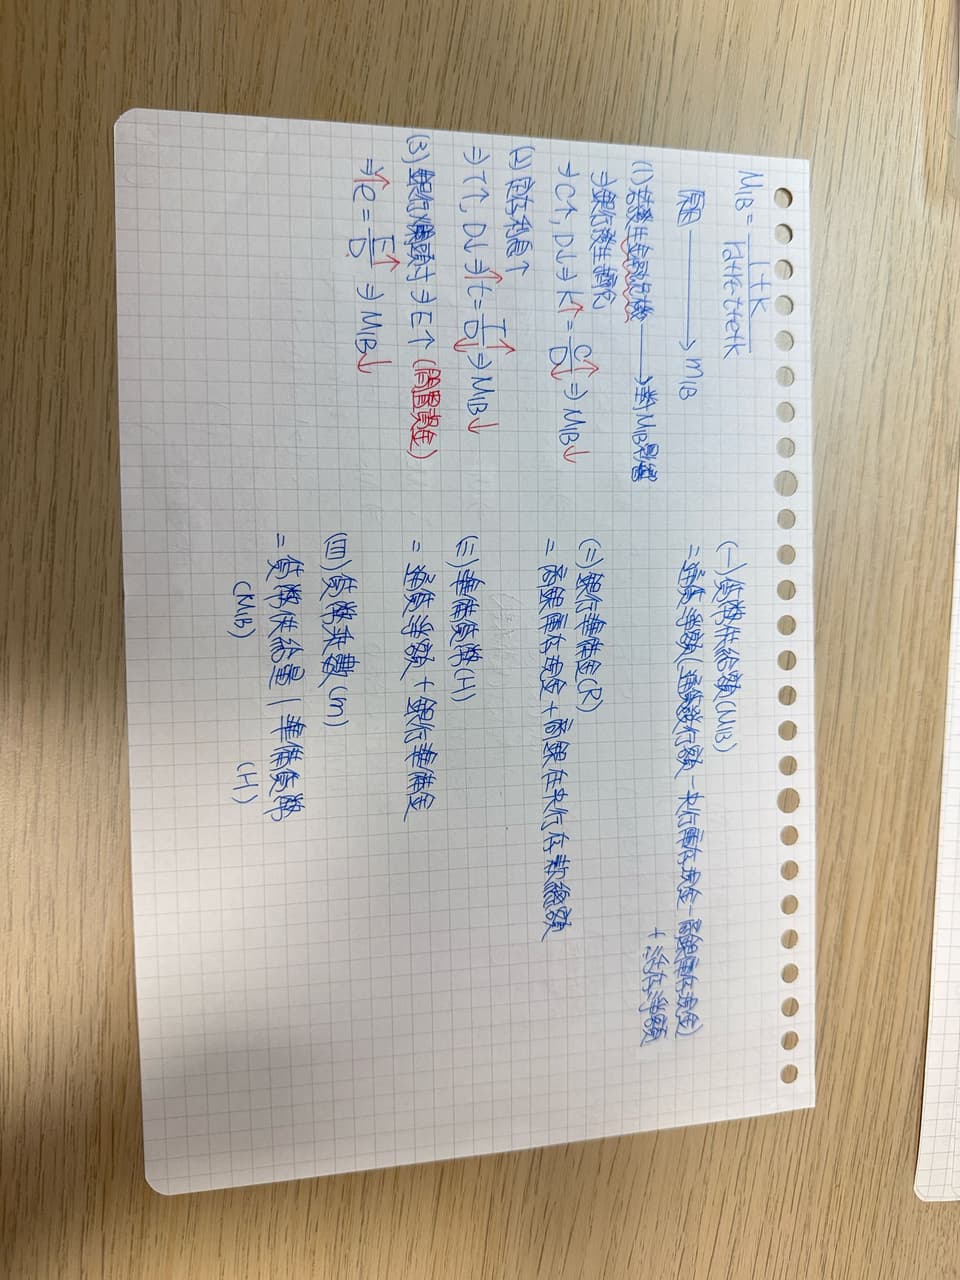 M1B = 1+K / rd+rt·t+e+k
原因 → m1B
(1) 發生金融危機 → 對M1B影響
⇒ 銀行發生擠兌
⇒ C↑, D↓ ⇒ K↑ = C↑/D↓ ⇒ M1B↓
(2) 定存利息↑
⇒ T↑, D↓ ⇒ t↑ = T↑/D↓ ⇒ M1B↓
(3) 銀行爛頭寸 ⇒ E↑ (超額準備金)
⇒ e↑ = E↑/D ⇒ M1B↓
(一) 貨幣供給額(M1B)
= 通貨淨額(通貨發行額 - 央行庫存現金 - 商銀庫存現金)
+ 活存淨額
(二) 銀行準備金(R)
= 商銀庫存現金 + 商銀在央行存款總額
(三) 準備貨幣(H)
= 通貨淨額 + 銀行準備金
(四) 貨幣乘數(m)
= 貨幣供給量 / 準備貨幣
(M1B) (H)